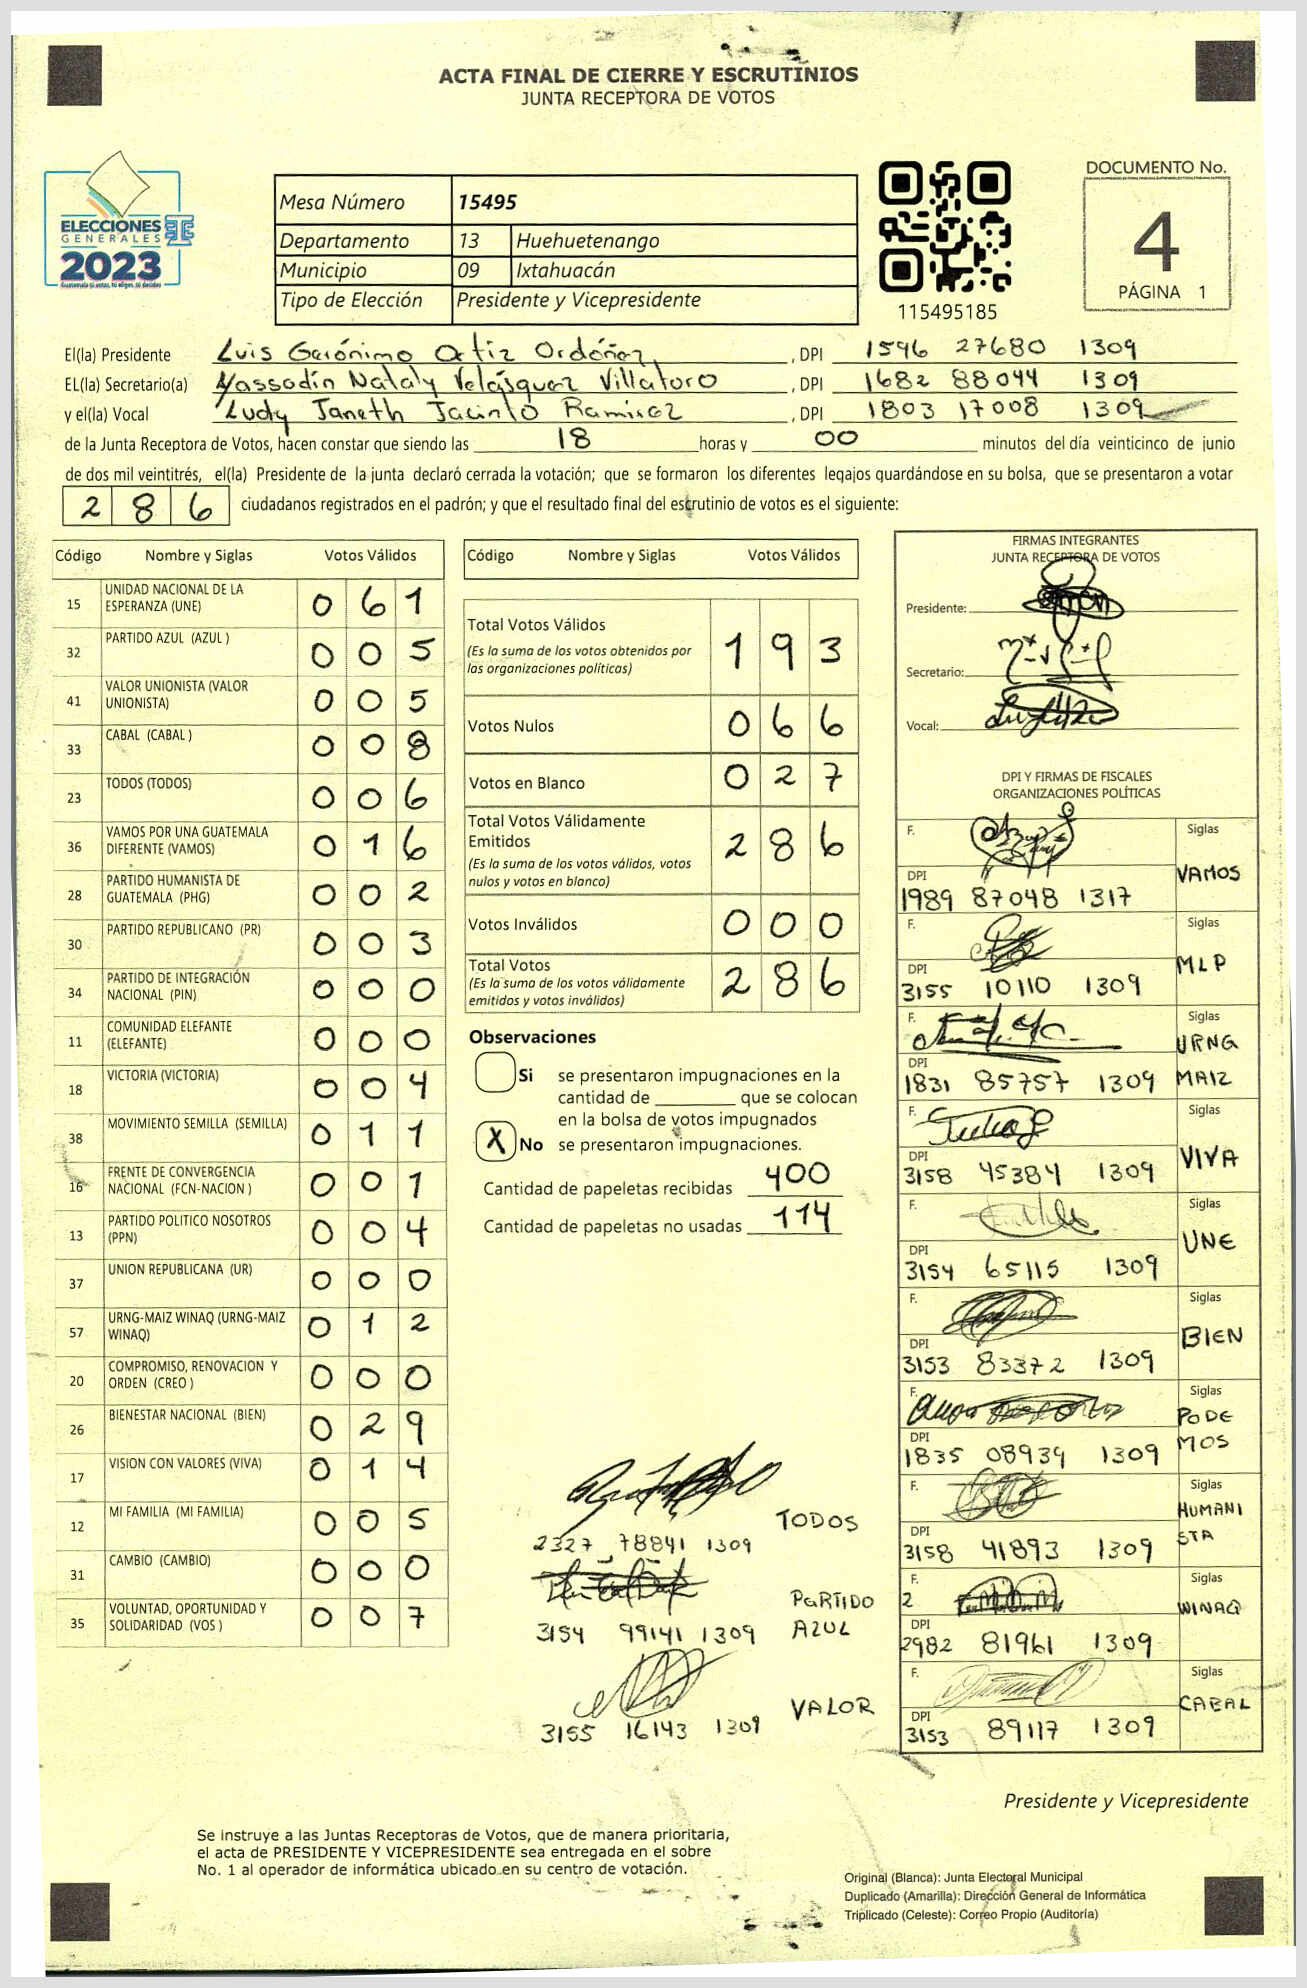 ACTA FINAL DE CIERRE Y ESCRUTINIOS
JUNTA RECEPTORA DE VOTOS
ELECCIONES
GENERALES
2023
Guatemala tú votas, tú eliges, tú decides
Mesa Número 15495
Departamento 13 Huehuetenango
Municipio 09 Ixtahuacán
Tipo de Elección Presidente y Vicepresidente
115495185
DOCUMENTO No.
4
PÁGINA 1
El(la) Presidente Luis Gerónimo Ortiz Ordóñez, DPI 1596 27680 1309
EL(la) Secretario(a) Yassodin Nataly Velásquez Villatoro, DPI 1682 88044 1309
y el(la) Vocal Ludy Janeth Jacinto Ramirez, DPI 1803 17008 1309
de la Junta Receptora de Votos, hacen constar que siendo las 18 horas y 00 minutos del día veinticinco de junio
de dos mil veintitrés, el(la) Presidente de la junta declaró cerrada la votación; que se formaron los diferentes legajos guardándose en su bolsa, que se presentaron a votar
286 ciudadanos registrados en el padrón; y que el resultado final del escrutinio de votos es el siguiente:
Código Nombre y Siglas Votos Válidos
15 UNIDAD NACIONAL DE LA ESPERANZA (UNE) 061
32 PARTIDO AZUL (AZUL ) 005
41 VALOR UNIONISTA (VALOR UNIONISTA) 005
33 CABAL (CABAL ) 008
23 TODOS (TODOS) 006
36 VAMOS POR UNA GUATEMALA DIFERENTE (VAMOS) 016
28 PARTIDO HUMANISTA DE GUATEMALA (PHG) 002
30 PARTIDO REPUBLICANO (PR) 003
34 PARTIDO DE INTEGRACIÓN NACIONAL (PIN) 000
11 COMUNIDAD ELEFANTE (ELEFANTE) 000
18 VICTORIA (VICTORIA) 004
38 MOVIMIENTO SEMILLA (SEMILLA) 011
16 FRENTE DE CONVERGENCIA NACIONAL (FCN-NACION ) 001
13 PARTIDO POLITICO NOSOTROS (PPN) 004
37 UNION REPUBLICANA (UR) 000
57 URNG-MAIZ WINAQ (URNG-MAIZ WINAQ) 012
20 COMPROMISO, RENOVACION Y ORDEN (CREO ) 000
26 BIENESTAR NACIONAL (BIEN) 029
17 VISION CON VALORES (VIVA) 014
12 MI FAMILIA (MI FAMILIA) 005
31 CAMBIO (CAMBIO) 000
35 VOLUNTAD, OPORTUNIDAD Y SOLIDARIDAD (VOS ) 007
Código Nombre y Siglas Votos Válidos
Total Votos Válidos 193
(Es la suma de los votos obtenidos por
las organizaciones políticas)
Votos Nulos 066
Votos en Blanco 027
Total Votos Válidamente
Emitidos 286
(Es la suma de los votos válidos, votos
nulos y votos en blanco)
Votos Inválidos 000
Total Votos 286
(Es la suma de los votos válidamente
emitidos y votos inválidos)
Observaciones
Si se presentaron impugnaciones en la
cantidad de ________ que se colocan
en la bolsa de votos impugnados
X No se presentaron impugnaciones.
Cantidad de papeletas recibidas 400
Cantidad de papeletas no usadas 114
TODOS
2327 78841 1309
PARTIDO
AZUL
3154 99141 1309
VALOR
3155 16143 1309
FIRMAS INTEGRANTES
JUNTA RECEPTORA DE VOTOS
Presidente:
Secretario:
Vocal:
DPI Y FIRMAS DE FISCALES
ORGANIZACIONES POLÍTICAS
F. Siglas
VAMOS
DPI
1989 87048 1317
F. Siglas
MLP
DPI
3155 10110 1309
F. Siglas
URNG
MAIZ
DPI
1831 85757 1309
F. Siglas
VIVA
DPI
3158 45384 1309
F. Siglas
UNE
DPI
3154 65115 1309
F. Siglas
BIEN
DPI
3153 83372 1309
F. Siglas
PODE
MOS
DPI
1835 08939 1309
F. Siglas
HUMANI
STA
DPI
3158 41893 1309
F. Siglas
2
WINAQ
DPI
2982 81961 1309
F. Siglas
CABAL
DPI
3153 89117 1309
Presidente y Vicepresidente
Se instruye a las Juntas Receptoras de Votos, que de manera prioritaria,
el acta de PRESIDENTE Y VICEPRESIDENTE sea entregada en el sobre
No. 1 al operador de informática ubicado en su centro de votación.
Original (Blanca): Junta Electoral Municipal
Duplicado (Amarilla): Dirección General de Informática
Triplicado (Celeste): Correo Propio (Auditoría)